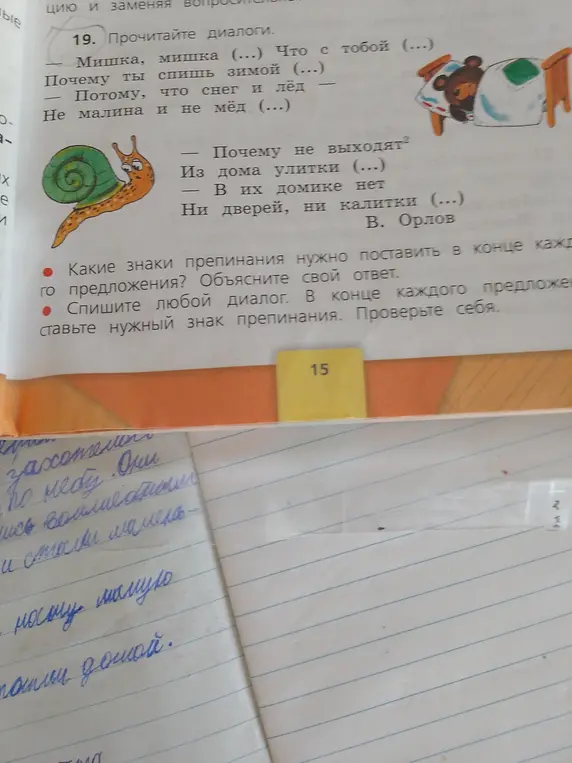 цию и заменяя
19. Прочитайте диалоги.
— Мишка, мишка (...) Что с тобой (...)
Почему ты спишь зимой (...)
— Потому, что снег и лёд —
Не малина и не мёд (...)
— Почему не выходят²
Из дома улитки (...)
— В их домике нет
Ни дверей, ни калитки (...)
В. Орлов
● Какие знаки препинания нужно поставить в конце кажд
го предложения? Объясните свой ответ.
● Спишите любой диалог. В конце каждого предложен
ставьте нужный знак препинания. Проверьте себя.
15
по небу. Они
и стали малень-
домой.